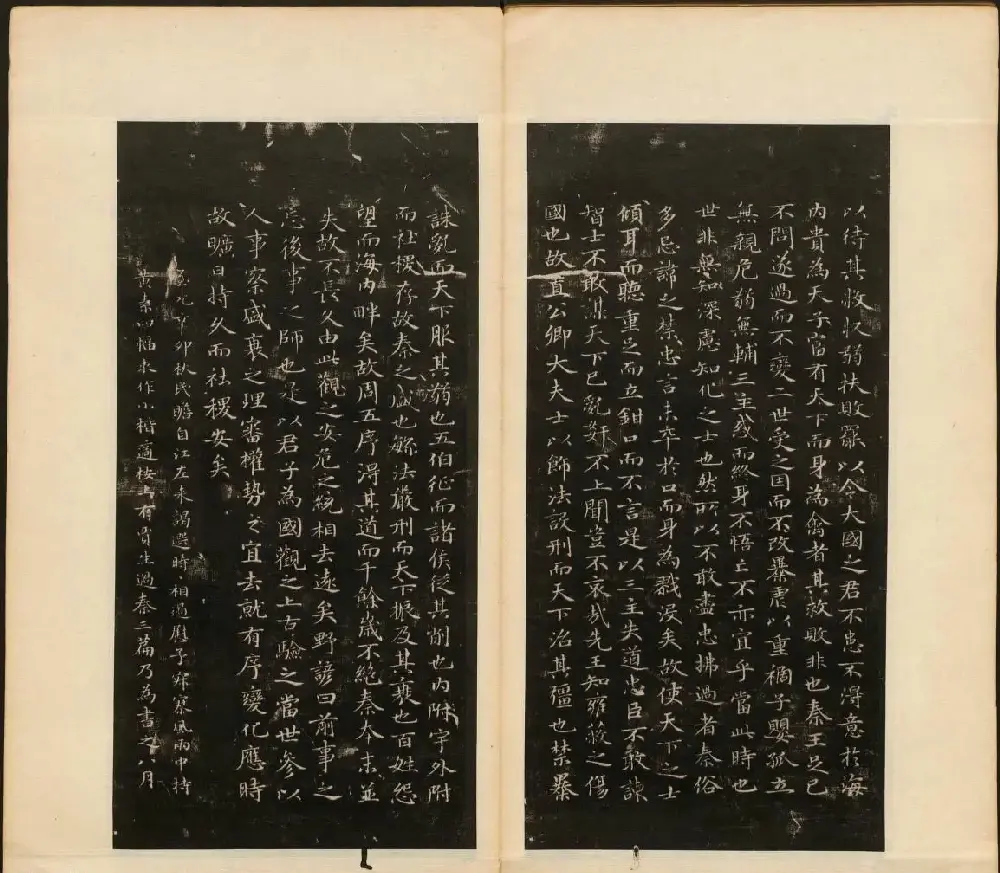 以待其敝收弱扶敗罷以令大國之君不患不得意扵海
内貴為天子富有天下而身為禽者其救敗非也秦王足己
不問遂過而不變二世受之因而不改暴虐以重禍子嬰孤立
無親危弱無輔三主惑而終身不悟亡不亦宜乎當此時也
世非無知深慮知化之士也然所以不敢盡忠拂過者秦俗
多忌諱之禁忠言未卒扵口而身為戮没矣故使天下之士
傾耳而聽重足而立鉗口而不言是以三主失道忠臣不敢諫
智士不敢謀天下已亂奸不上聞豈不哀哉先王知雍蔽之傷
國也故置公卿大夫士以飾法設刑而天下治其彊也禁暴
誅亂而天下服其弱也五伯征而諸侯從其削也内附守外附
而社稷存故秦之盛也繁法嚴刑而天下振及其衰也百姓怨
望而海内畔矣故周五序得其道而千餘歲不絶秦本末並
失故不長久由此觀之安危之統相去遠矣野諺曰前事之
不忘後事之師也是以君子為國觀之上古驗之當世參以
人事察盛衰之理審權勢之宜去就有序變化應時
故曠日持久而社稷安矣
辛卯秋民瞻自江左来謁選時相過應子 風雨中持
黄素四幅求作小楷適按上有賈生過秦三篇乃為書之八月